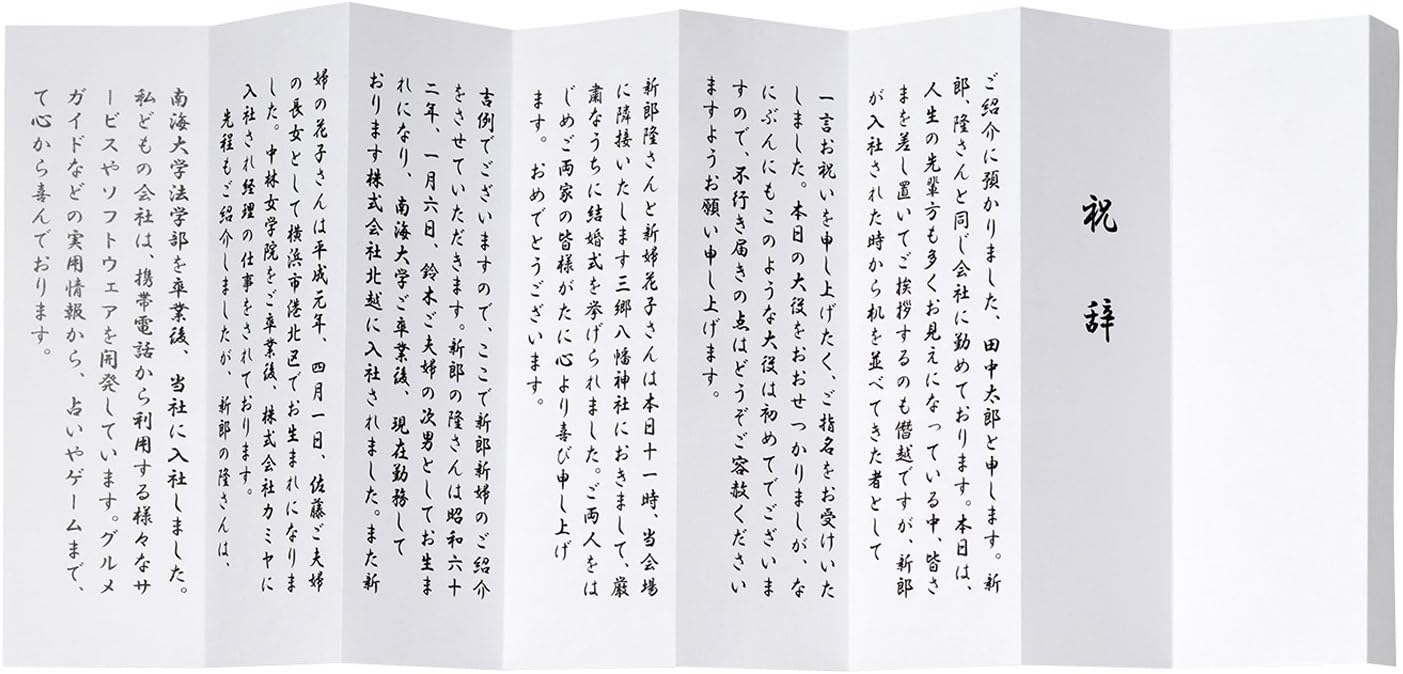 祝辞
ご紹介に預かりました、田中太郎と申します。新
郎、隆さんと同じ会社に勤めております。本日は、
人生の先輩方も多くお見えになっている中、皆さ
まを差し置いてご挨拶するのも僭越ですが、新郎
が入社された時から机を並べてきた者として
一言お祝いを申し上げたく、ご指名をお受けいた
しました。本日の大役をおおせつかりましが、な
にぶんにもこのような大役は初めてでございま
すので、不行き届きの点はどうぞご容赦ください
ますようお願い申し上げます。
新郎隆さんと新婦花子さんは本日十一時、当会場
に隣接いたします三郷八幡神社におきまして、厳
粛なうちに結婚式を挙げられました。ご両人をは
じめご両家の皆様がたに心より喜び申し上げ
ます。おめでとうございます。
吉例でございますので、ここで新郎新婦のご紹介
をさせていただきます。新郎の隆さんは昭和六十
二年、一月六日、鈴木ご夫婦の次男としてお生ま
れになり、南海大学ご卒業後、現在勤務して
おります株式会社北越に入社されました。また新
婦の花子さんは平成元年、四月一日、佐藤ご夫婦
の長女として横浜市港北区でお生まれになりま
した。中林女学院をご卒業後、株式会社カミヤに
入社され経理の仕事をされております。
先程もご紹介しましたが、新郎の隆さんは、
南海大学法学部を卒業後、当社に入社しました。
私どもの会社は、携帯電話から利用する様々なサ
ービスやソフトウェアを開発しています。グルメ
ガイドなどの実用情報から、占いやゲームまで、
て心から喜んでおります。